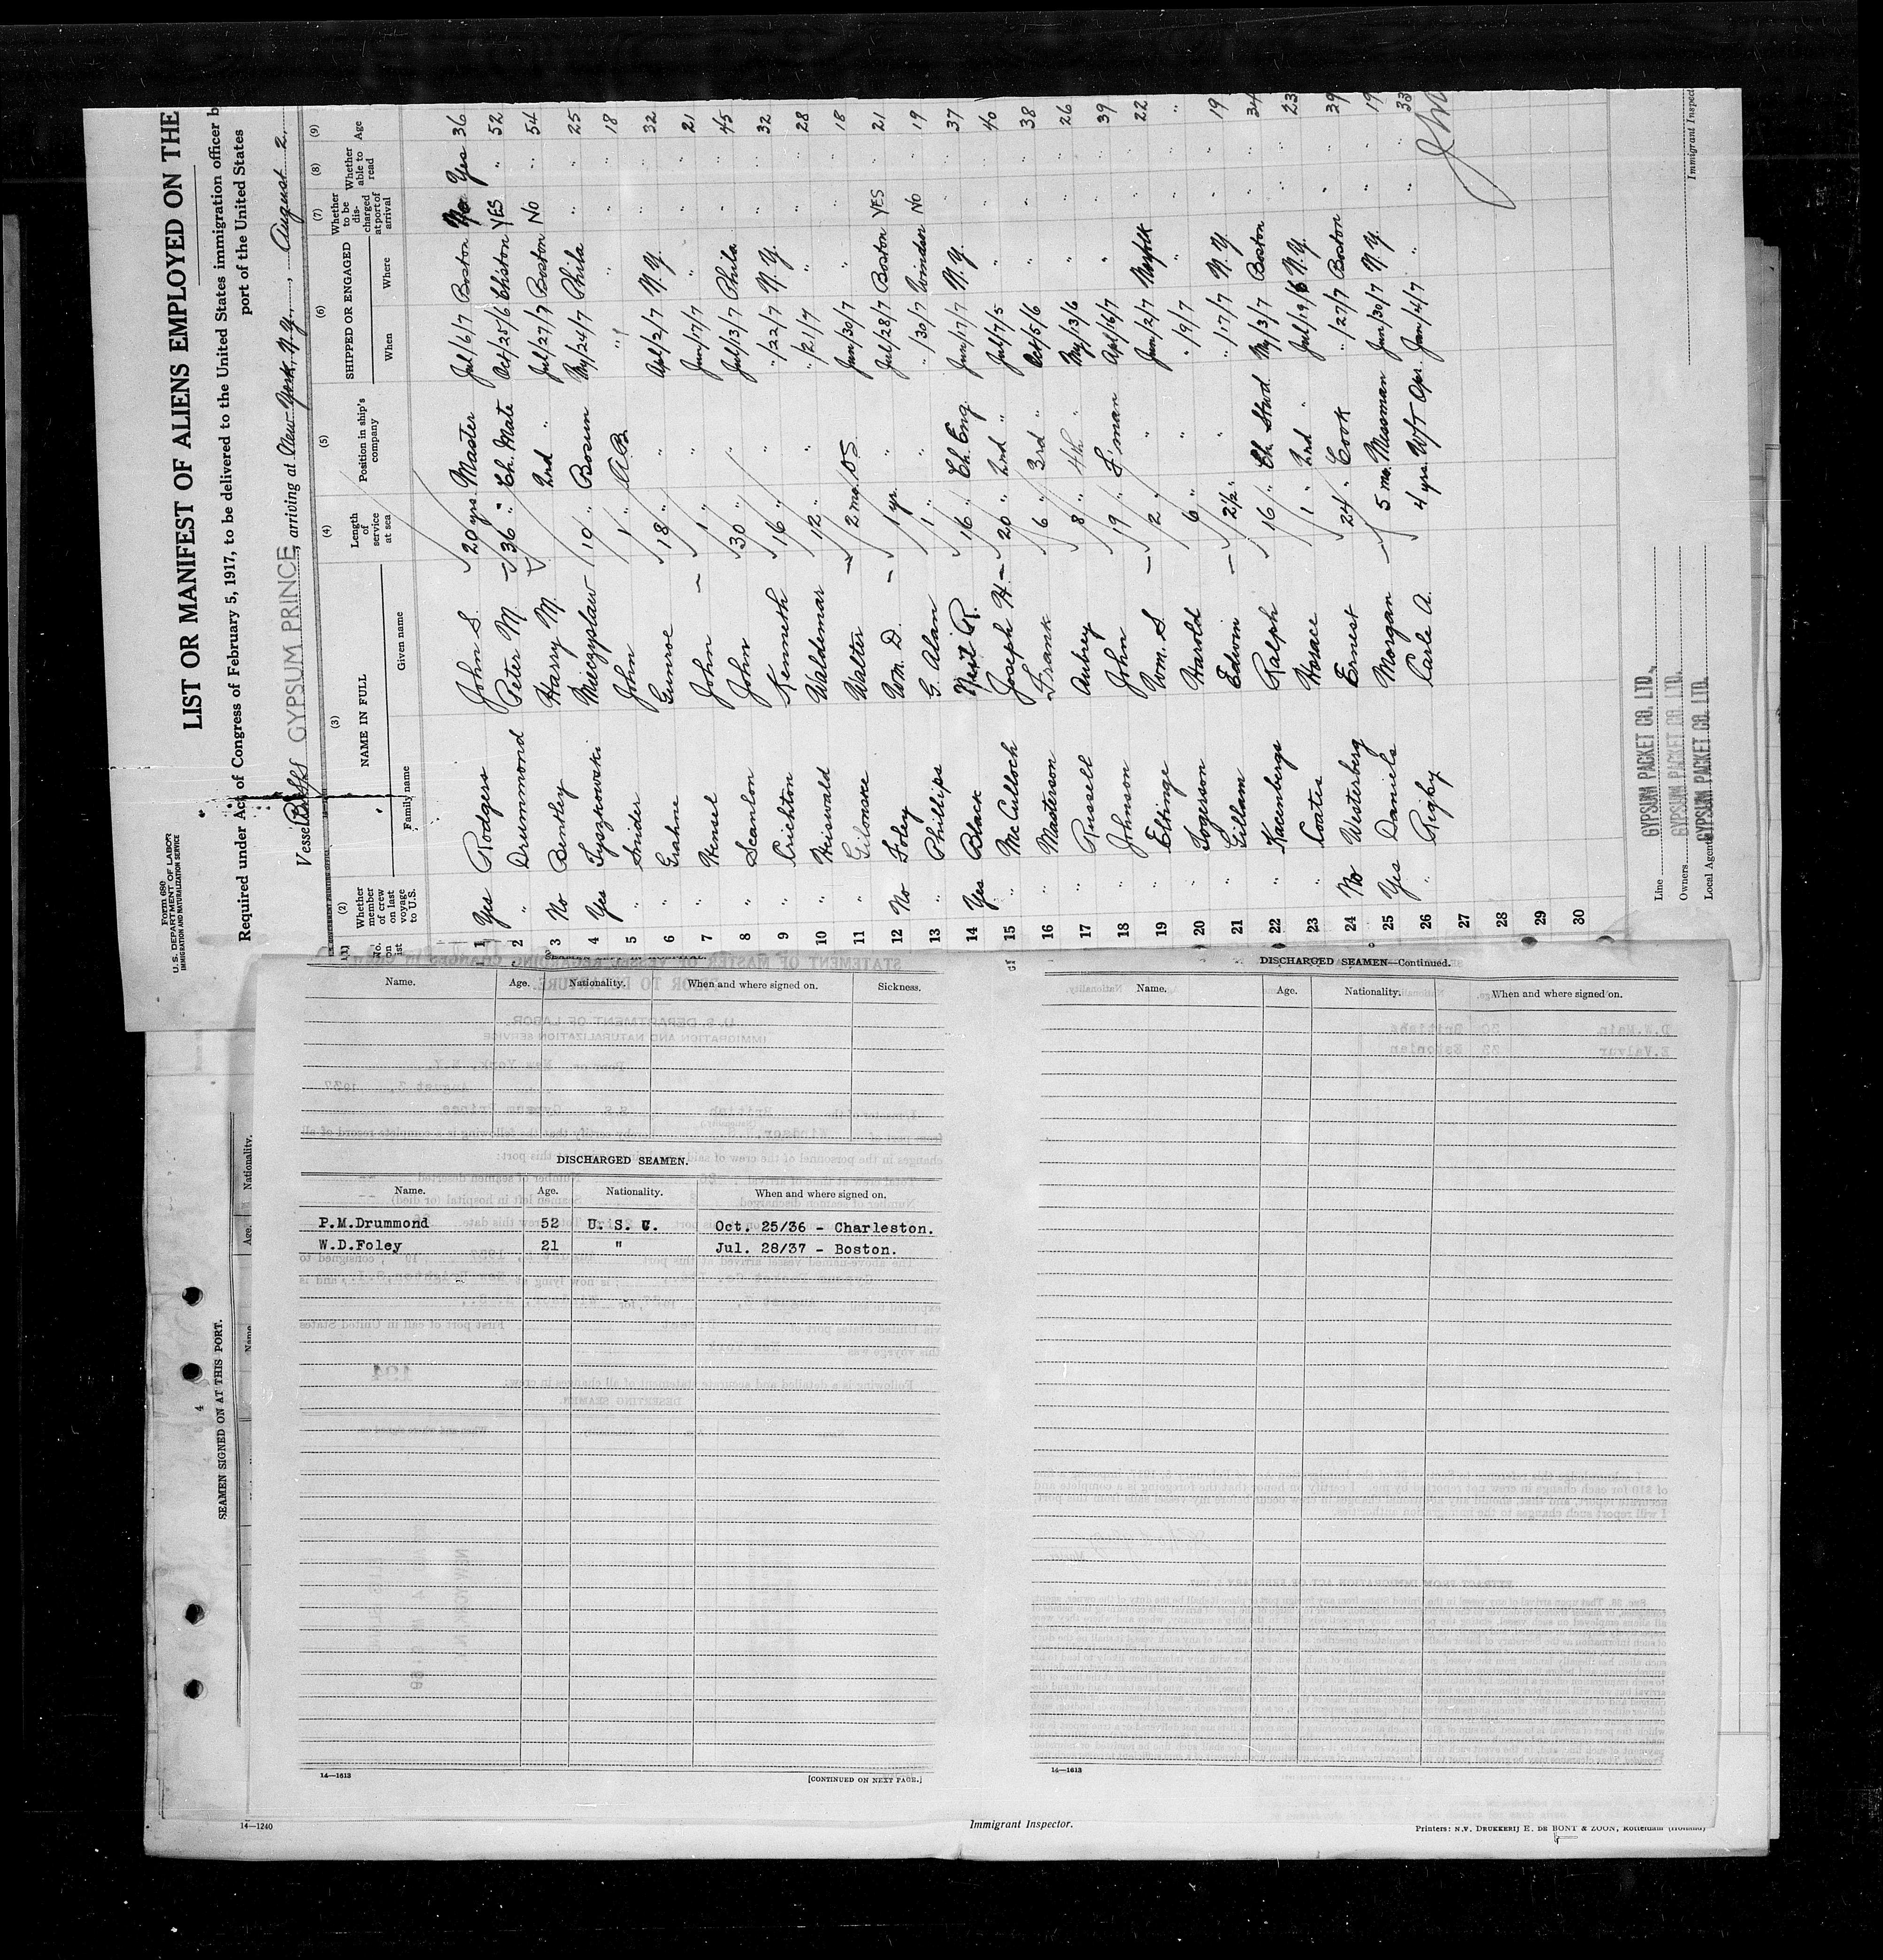 Form 680
U. S. DEPARTMENT OF LABOR
IMMIGRATION AND NATURALIZATION SERVICE
LIST OR MANIFEST OF ALIENS EMPLOYED ON THE
Required under Act of Congress of February 5, 1917, to be delivered to the United States immigration officer b
port of the United States
Vessel GYPSUM PRINCE, arriving at New York, N.Y., August 2,
(1) (2) (3) (4) (5) (6) (7) (8) (9)
No. on list Whether member of crew on last voyage to U.S. NAME IN FULL Family name Given name Length of service at sea Position in ship's company SHIPPED OR ENGAGED When Where Whether to be discharged at port of arrival Whether able to read Age
1 Yes Rodgers John S. 20 yrs. Master Jul/6/7 Boston No Yes 36
2 " Drummond Peter M 36 " Ch. Mate Oct/25/6 Ch'ston YES " 52
3 No Bentley Harry M. 2nd " Jul/27/7 Boston No " 54
4 Yes Tyszkowski Mieczyslaw 10 " Bosun My/24/7 Phila " " 25
5 " Snider John 1 " A.B. " " " " 18
6 " Grahne Gunroe 18 " " Apl/2/7 N.Y. " " 32
7 " Hensel John 1 " " Jun/17/7 " " " 21
8 " Scanlon John 30 " " Jul/13/7 Phila " " 45
9 " Crichton Kenneth 16 " " "/22/7 N.Y. " " 32
10 " Heiswald Waldemar 12 " " "/21/7 " " " 28
11 " Gilonske Walter 2 mo. OS Jun/30/7 " " " 18
12 No Foley Wm. D. 1 yr. " Jul/28/7 Boston YES " 21
13 " Phillips G. Alam 1 " " "/30/7 Windsor No " 19
14 Yes Black Neil R. 16 " Ch. Eng. Jun/17/7 N.Y. " " 37
15 " McCulloch Joseph H. 20 " 2nd " Jul/7/5 " " " 40
16 " Masterson Frank 6 " 3rd " Oct/5/6 " " " 38
17 " Russell Aubrey 8 " 4th " My/13/6 " " " 26
18 " Johnson John 19 " F'man Apl/16/7 " " " 39
19 " Eltinge Wm. S. 2 " " Jun/2/7 Norfolk " " 22
20 " Torgerson Harold 6 " " "/9/7 " " " "
21 " Gillam Edwin 2½ " " "/17/7 N.Y. " " 19
22 " Kacenbergs Ralph 16 " Ch. Stwd. My/3/7 Boston " " 34
23 " Coates Horace 1 " 2nd " Jul/9/6 N.Y. " " 23
24 No Westerberg Ernest 24 " Cook "/27/7 Boston " " 39
25 Yes Daniels Morgan 5 mo. Messman Jun/30/7 N.Y. " " 19
26 " Rigby Carle A. 4 yrs. W/T Opr. Jan/4/7 " " " 33
27
28
29
30
Line GYPSUM PACKET CO. LTD.,
Owners GYPSUM PACKET CO. LTD.
Local Agents GYPSUM PACKET CO. LTD.
Immigrant Inspec
Name. Age. Nationality. When and where signed on. Sickness.
DISCHARGED SEAMEN.
Name. Age. Nationality. When and where signed on.
P.M.Drummond 52 U. S. C. Oct. 25/36 - Charleston.
W.D.Foley 21 " Jul. 28/37 - Boston.
14—1613
[CONTINUED ON NEXT PAGE.]
DISCHARGED SEAMEN—Continued.
Name. Age. Nationality. When and where signed on.
14—1613
4
SEAMEN SIGNED ON AT THIS PORT.
Name Age. Nationality.
14—1240
Immigrant Inspector.
Printers: N.V. DRUKKERIJ E. DE BONT & ZOON, Rotterdam (Holland)